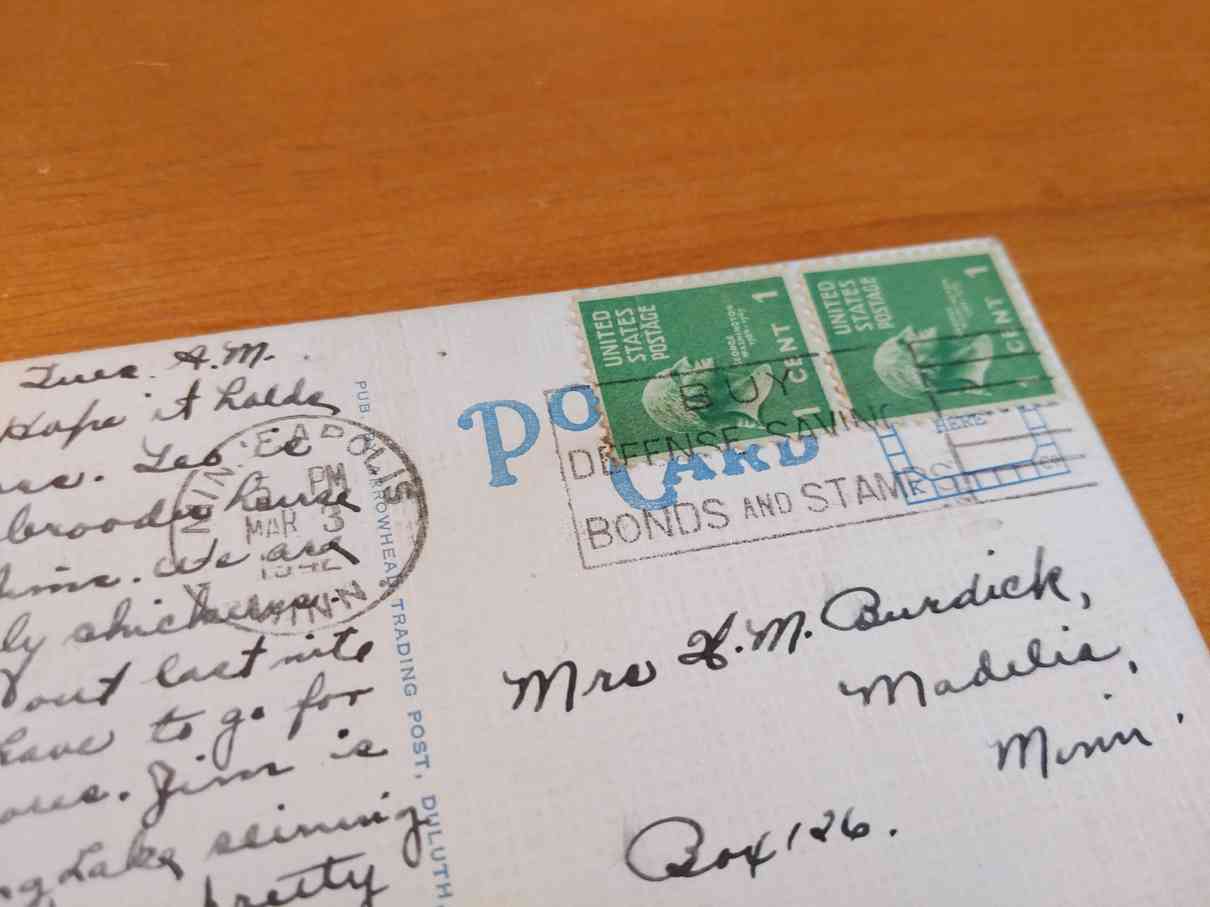 Tues. A.M.
Hope it holds
Leo is
brooder house
time. We are
chickens.
out last nite
have to go for
Jim is
Lake seining
pretty
MINNEAPOLIS
PM
MAR 3
1942
MINN.
PUB. BY ARROWHEAD TRADING POST, DULUTH
POST CARD
UNITED
STATES
POSTAGE
GEORGE
WASHINGTON
1 CENT
1
UNITED
STATES
POSTAGE
1 CENT
1
HERE
BUY
DEFENSE SAVINGS
BONDS AND STAMPS
Mrs H. M. Burdick,
Madelia,
Minn.
Box 126.